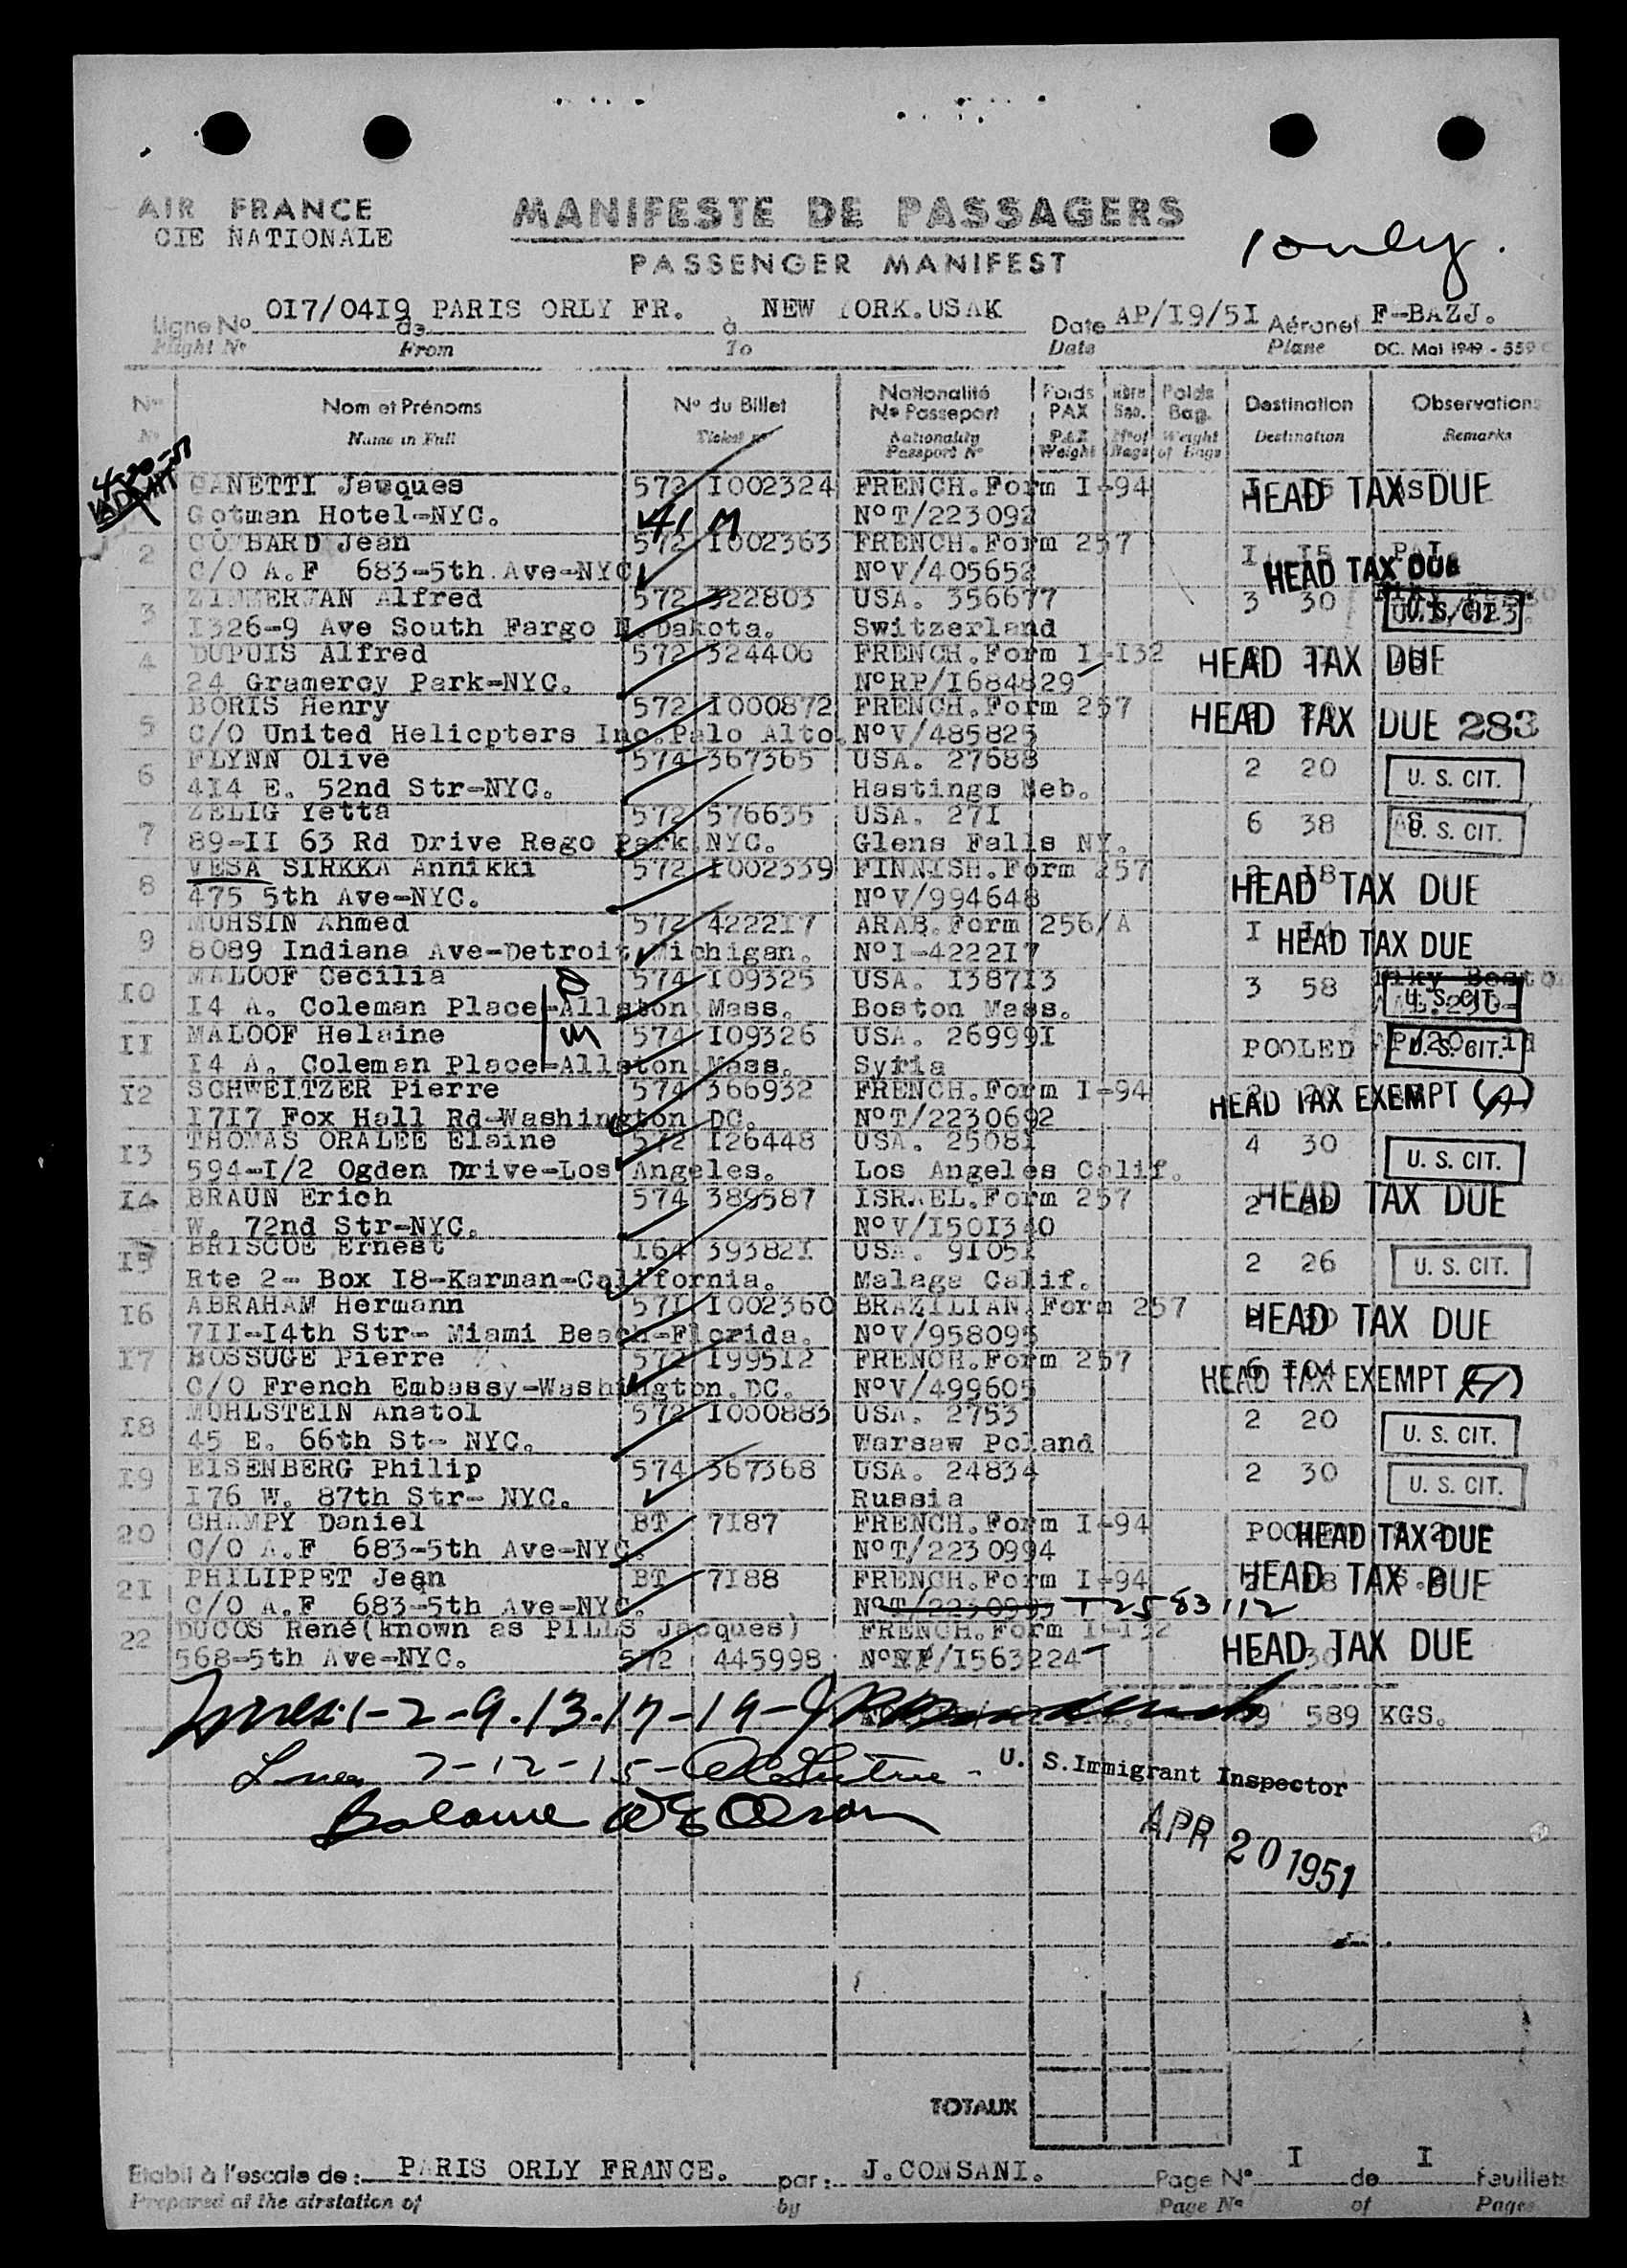 AIR FRANCE
CIE NATIONALE
MANIFESTE DE PASSAGERS
PASSENGER MANIFEST
1 only.
Ligne No OI7/04I9 de PARIS ORLY FR. à NEW YORK.USAK Date AP/I9/5I Aéronef F-BAZJ.
Flight No From To Date Plane DC. Mai 1949 - 559
Nos Nom et Prénoms No du Billet Nationalité No Passeport Poids PAX Nbre Bag. Poids Bag. Destination Observations
No Name in Full Ticket no Nationality Passport No PAX Weight No of Bags Weight of Bags Destination Remarks
4-20-51
CANETTI Jacques 572 I002324 FRENCH.Form I-94 HEAD TAX DUE
Gotman Hotel-NYC. NoT/223092
2 COMBARD Jean 572 I002363 FRENCH.Form 257 I I5
C/O A.F 683-5th Ave-NYC NoV/405652 HEAD TAX DUE
3 ZIMMERMAN Alfred 572 322803 USA. 356677 3 30
I326-9 Ave South Fargo N.Dakota. Switzerland U. S. CIT.
4 DUPUIS Alfred 572 324406 FRENCH.Form I-I32 HEAD TAX DUE
24 Gramercy Park-NYC. NoRP/I684829
5 BORIS Henry 572 I000872 FRENCH.Form 257 HEAD TAX DUE 283
C/O United Helicpters Inc.Palo Alto. NoV/485825
6 FLYNN Olive 574 367365 USA. 27688 2 20
4I4 E. 52nd Str-NYC. Hastings Neb. U. S. CIT.
7 ZELIG Yetta 572 576635 USA. 27I 6 38
89-II 63 Rd Drive Rego Park.NYC. Glens Falls NY. U. S. CIT.
8 VESA SIRKKA Annikki 572 I002339 FINNISH.Form 257 I8
475 5th Ave-NYC. NoV/994648 HEAD TAX DUE
9 MUHSIN Ahmed 572 4222I7 ARAB.Form 256/A I I4
8089 Indiana Ave-Detroit Michigan. NoI-4222I7 HEAD TAX DUE
I0 MALOOF Cecilia 574 I09325 USA. I387I3 3 58
I4 A. Coleman Place-Allston Mass. Boston Mass. U. S. CIT.
II MALOOF Helaine 574 I09326 USA. 26999I POOLED U. S. CIT.
I4 A. Coleman Place-Allston Mass. Syria
I2 SCHWEITZER Pierre 574 366932 FRENCH.Form I-94 HEAD TAX EXEMPT (A)
I7I7 Fox Hall Rd-Washington DC. NoT/2230692
I3 THOMAS ORALEE Elaine 572 I26448 USA. 2508I 4 30
594-I/2 Ogden Drive-Los Angeles. Los Angeles Calif. U. S. CIT.
I4 BRAUN Erich 574 389587 ISRAEL.Form 257 2 HEAD TAX DUE
W. 72nd Str-NYC. NoV/I50I340
I5 BRISCOE Ernest I64 39382I USA. 9I05I 2 26
Rte 2- Box I8-Karman-California. Malaga Calif. U. S. CIT.
I6 ABRAHAM Hermann 57I I002360 BRAZILIAN.Form 257 HEAD TAX DUE
7II-I4th Str- Miami Beach-Florida. NoV/958095
I7 BOSSUGE Pierre 572 I995I2 FRENCH.Form 257 6 I04
C/O French Embassy-Washington.DC. NoV/499605 HEAD TAX EXEMPT
I8 MUHLSTEIN Anatol 572 I000883 USA. 2753 2 20
45 E. 66th St- NYC. Warsaw Poland U. S. CIT.
I9 EISENBERG Philip 574 367368 USA. 24834 2 30
I76 W. 87th Str- NYC. Russia U. S. CIT.
20 CHAMPY Daniel BT 7I87 FRENCH.Form I-94 POOLED HEAD TAX DUE
C/O A.F 683-5th Ave-NYC. NoT/2230994
21 PHILIPPET Jean BT 7I88 FRENCH.Form I-94 HEAD TAX DUE
C/O A.F 683-5th Ave-NYC. NoT/2230995 T2583112
22 DUCOS René(known as PILLS Jacques) FRENCH.Form I-I32
568-5th Ave-NYC. 572 445998 NoRP/I563224 HEAD TAX DUE
Lines 1-2-9.13.17-19- 589 KGS.
Lines 7-12-15-
U. S. Immigrant Inspector
Balance
APR 20 1951
TOTAUX
Etabli à l'escale de : PARIS ORLY FRANCE. par : J.CONSANI. Page No I de I feuillets
Prepared at the airstation of by Page No of Pages